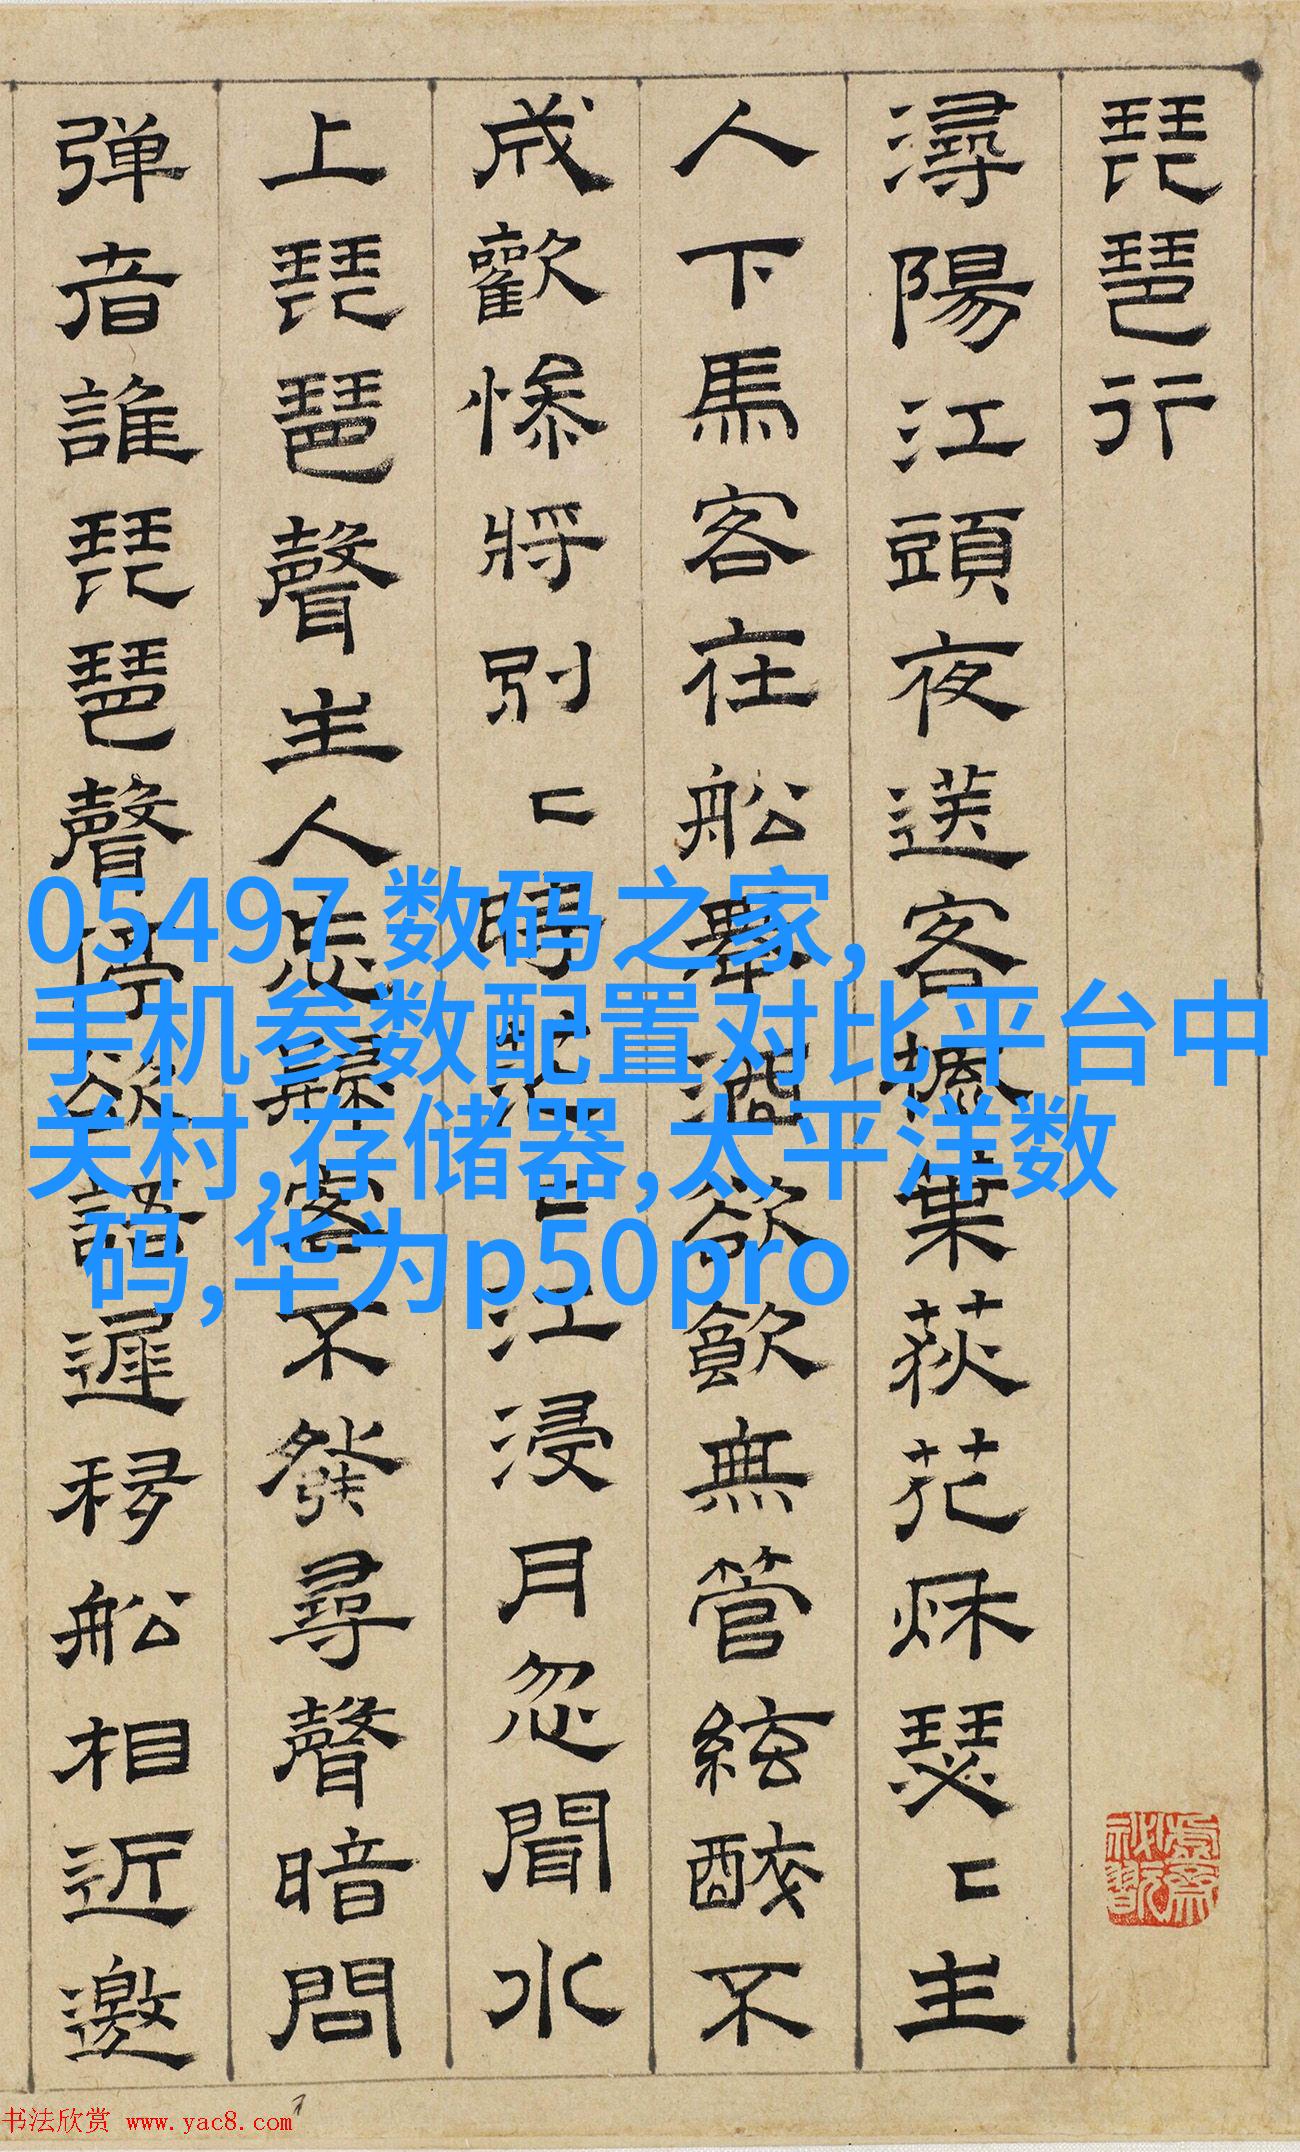 琵琶行
潯陽江頭夜送客楓葉荻花秌瑟〻主
人下馬客在船舉酒欲飲無管絃醉不
成歡慘將別〻時茫〻江浸月忽聞水
上琵琶聲主人忘歸客不發尋聲暗問
弹者誰琵琶聲停欲語遲移船相近邀
05497 数码之家,
手机参数配置对比平台中
关村,存储器,太平洋数
码,华为p50pro
书法欣赏 www.yac8.com